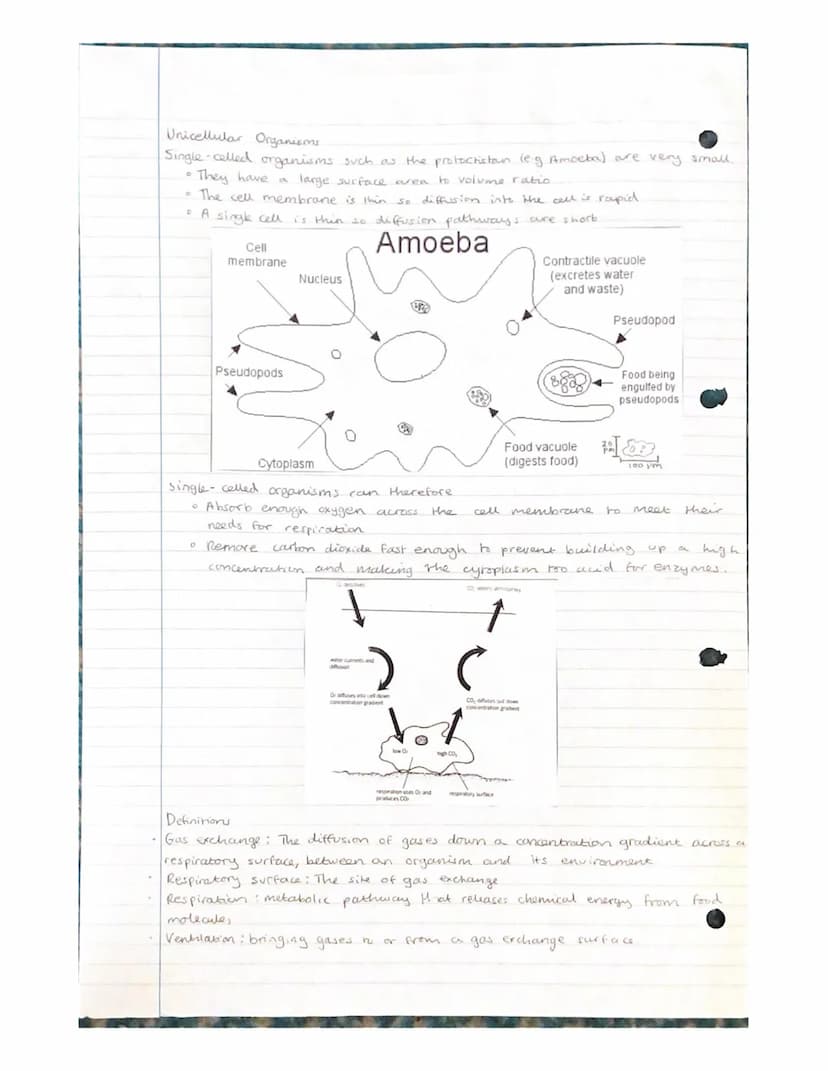 Unicellular Organisms
Single-celled organisms such as the protoctistan (e.g Amoeba) are very small.
• They have a large surface area to volume ratio
• The cell membrane is thin so diffusion into the cell is rapid
• A single cell is thin so diffusion pathways are short
Amoeba
Cell
membrane
Nucleus
Contractile vacuole
(excretes water
and waste)
Pseudopod
Pseudopods
Food being
engulfed by
pseudopods
Food vacuole
(digests food)
Cytoplasm
100 µm
Single-celled organisms can therefore
• Absorb enough oxygen across the cell membrane to meet their
needs for respiration
• Remove carbon dioxide fast enough to prevent building up a high
concentration and making the cytoplasm too acid for enzymes.
water currents and
diffusion
O₂ diffuses into cell down
concentration gradient
CO₂ diffuses out down
concentration gradient
low O₂
high CO₂
respiration uses O₂ and
produces CO₂
respiratory surface
Definitions
· Gas exchange: The diffusion of gases down a concentration gradient across a
respiratory surface, between an organism and its environment
· Respiratory surface: The site of gas exchange
· Respiration: metabolic pathway that releases chemical energy from food
molecules
· Ventilation: bringing gases to or from a gas exchange surface